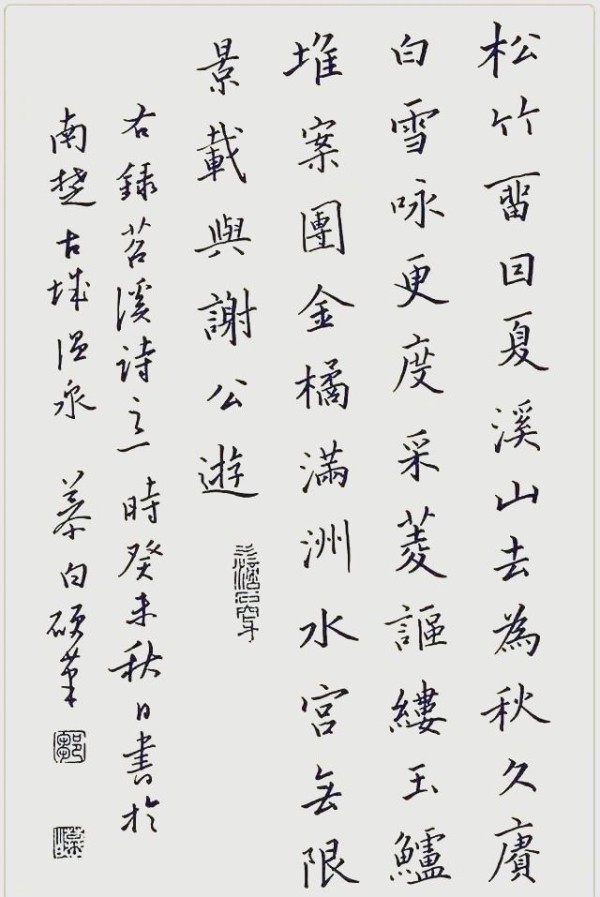 松竹畱囙夏溪山去為秋久賡
白雪咏更度采菱謳縷玉鱸
堆案團金橘滿洲水宮無限
景載與謝公遊
右録苕溪詩之一時癸未秋日書於
南楚古城温泉 慕白硕筆